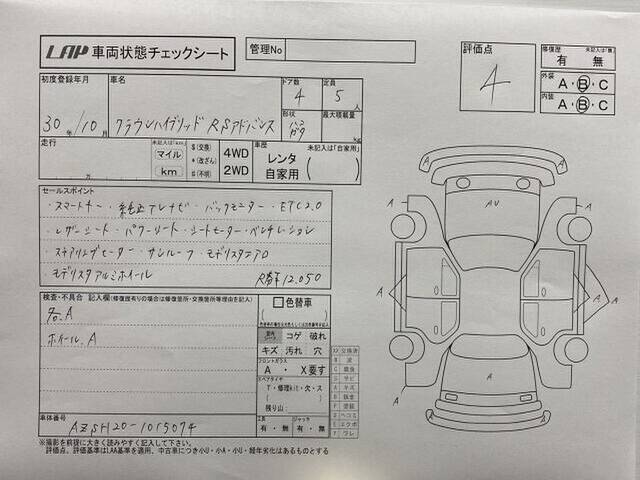 LAP 車両状態チェックシート
管理No
評価点
4
修復歴 未記入は(無)
有 ・ 無
外装
A・B・C
内装
A・B・C
初度登録年月
車名
ドア数
定員
30年 / 10月
クラウンハイブリッド RSアドバンス
4
5人
形状
最大積載量
kg
走行
未記入は「km」
マイル
km
$(交換)
*(改ざん)
#(不明)
4WD
2WD
車歴
未記入は「自家用」
レンタ
自家用
セールスポイント
・スマートキー ・純正テレナビ ・バックモニター ・ETC2.0
・レザーシート ・パワーシート ・シートヒーター ・ベンチレーション
・ステアリングヒーター ・サンルーフ ・モデリスタエアロ
・モデリスタアルミホイール
R券¥12,050
検査・不具合 記入欄(修復歴有りの場合は修復箇所・交換箇所等理由を記入)
各A
ホイールA
色替車
内装
シート
コゲ 破れ
キズ 汚れ 穴
フロントガラス
A ・ X要す
スペアタイヤ
T・修理kit・欠・ス
残り山:
工具
有・無
ジャッキ
有・無
XX 交換済
A キズ
車体番号
AZSH20-1015074
A
A
AU
A
A
A
A
A
A
※撮影を前提に大きく読みやすく記入して下さい。
評価点、評価基準はLAA基準を適用、中古車につき小U・小A・小U・経年劣化はあるものとする